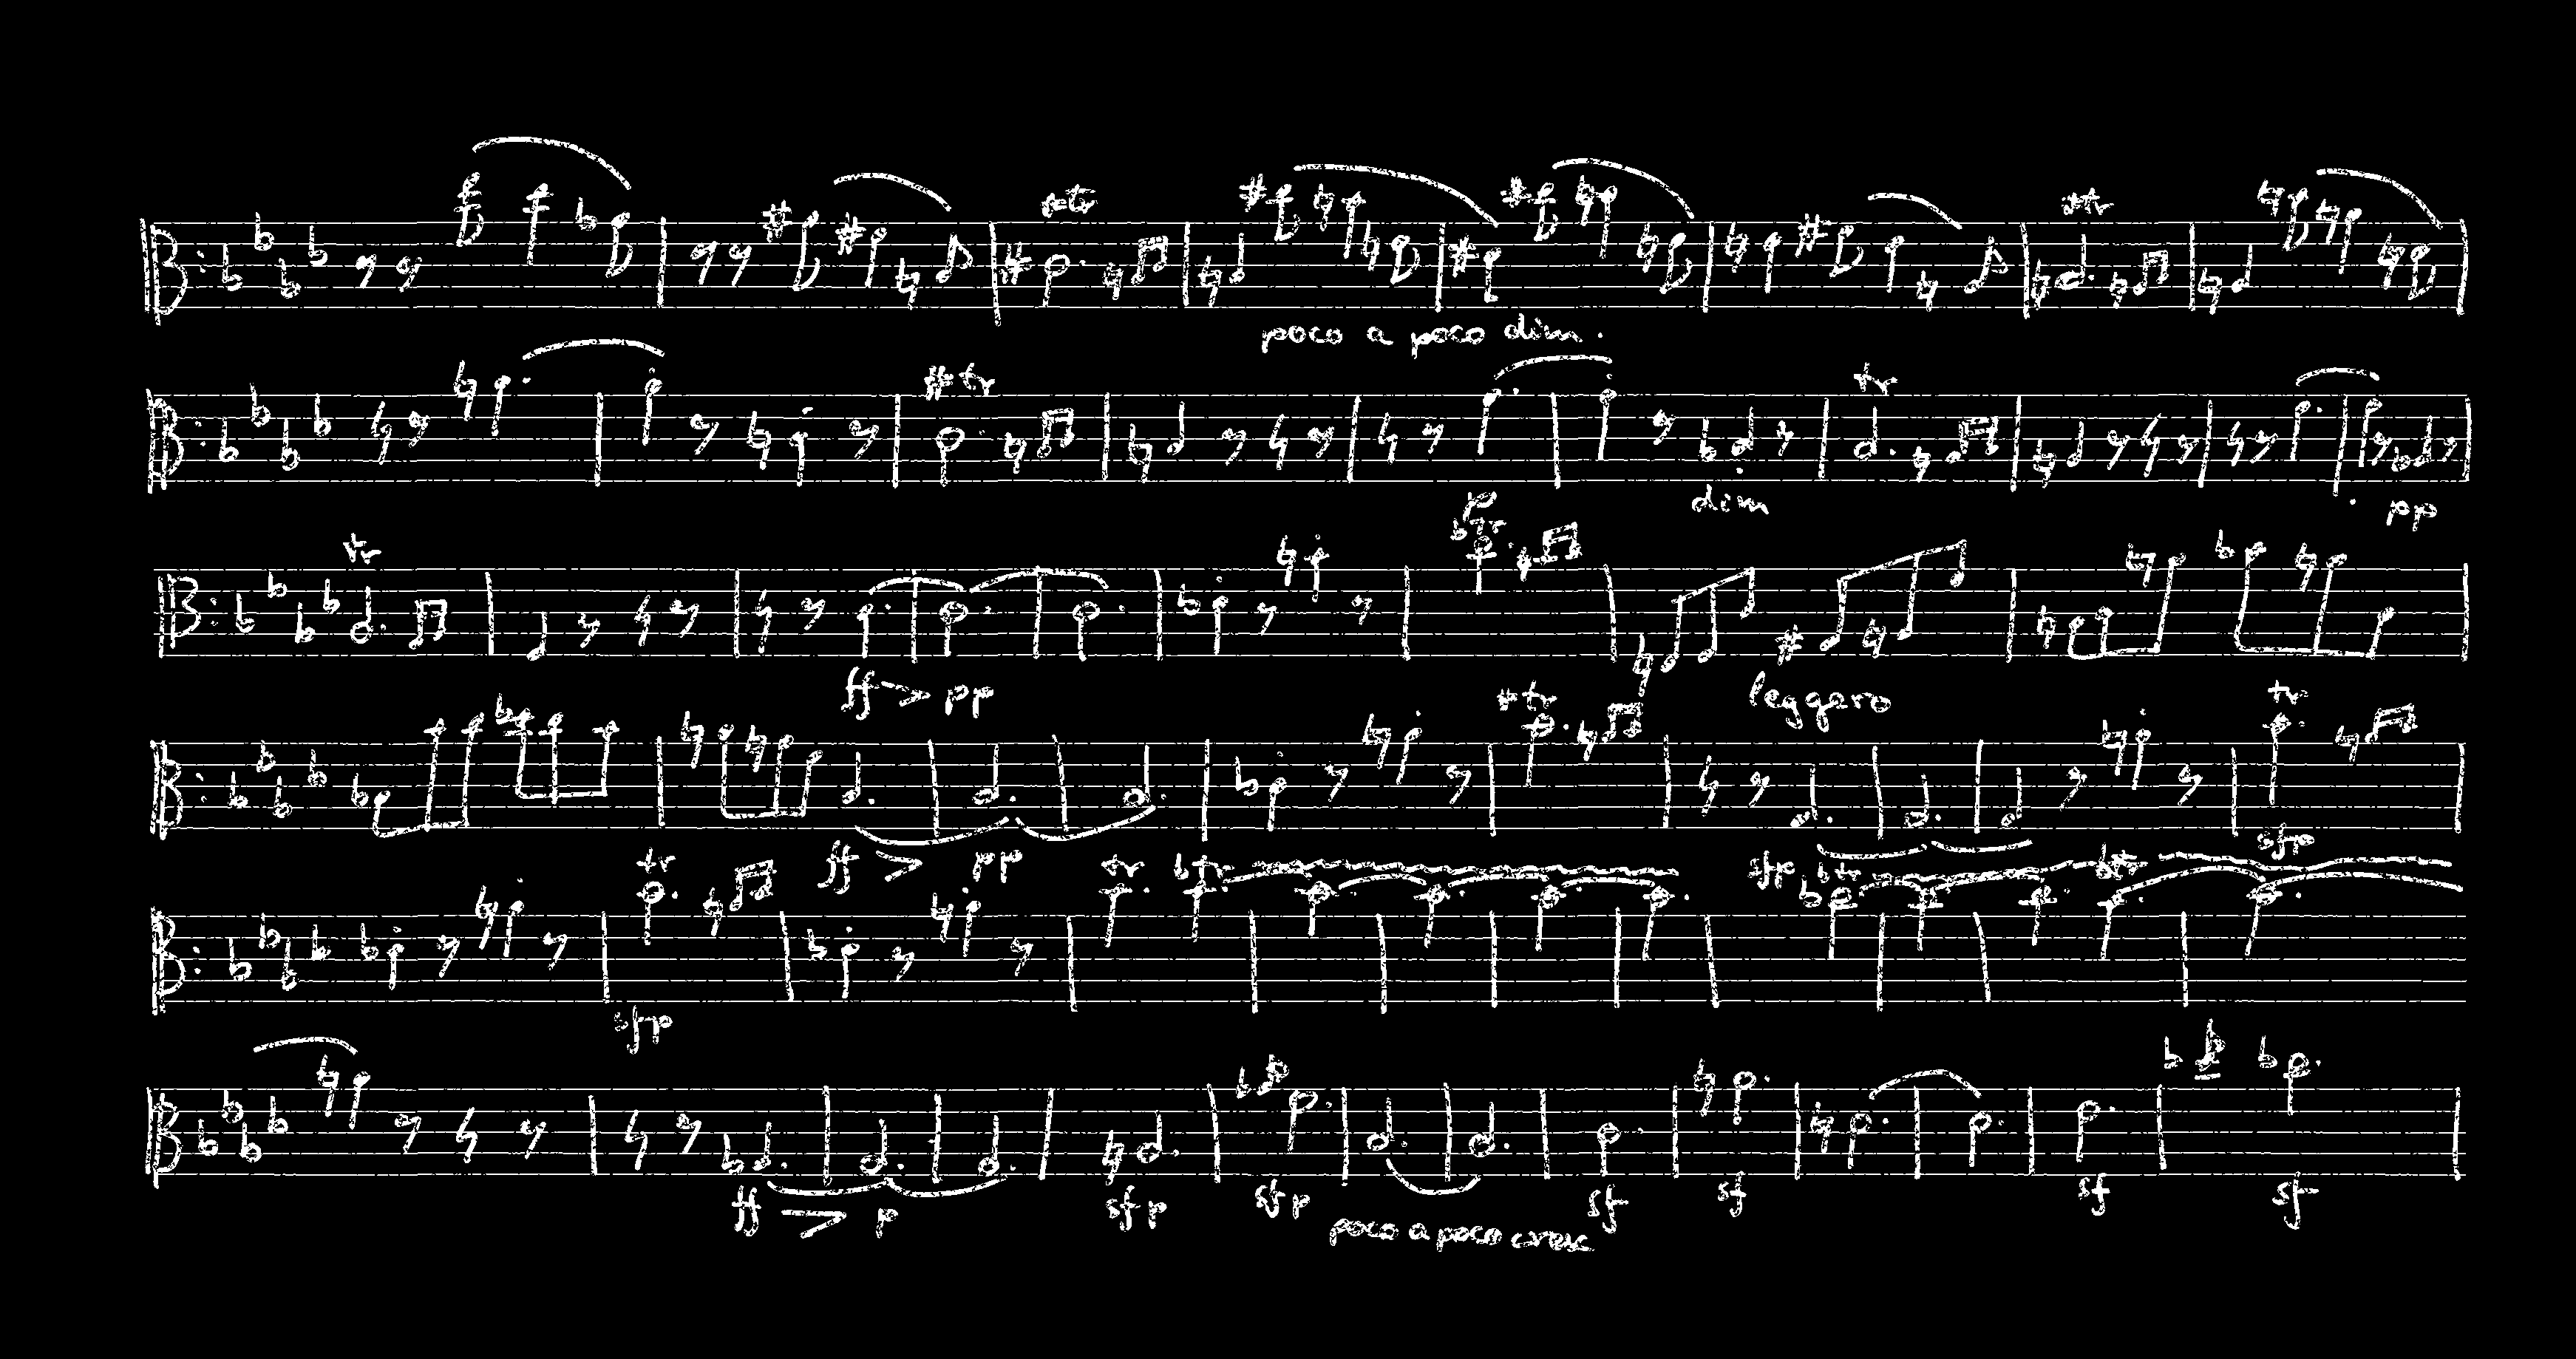 tr
poco a poco dim.
tr
tr
tr
dim
p
pp
tr
tr
ff > pp
leggero
tr
tr
ff > pp
sfp
tr
tr
tr
sfp
tr
tr
sfp
ff > p
sfp
sfp
poco a poco cresc
sf
sf
sf
sf